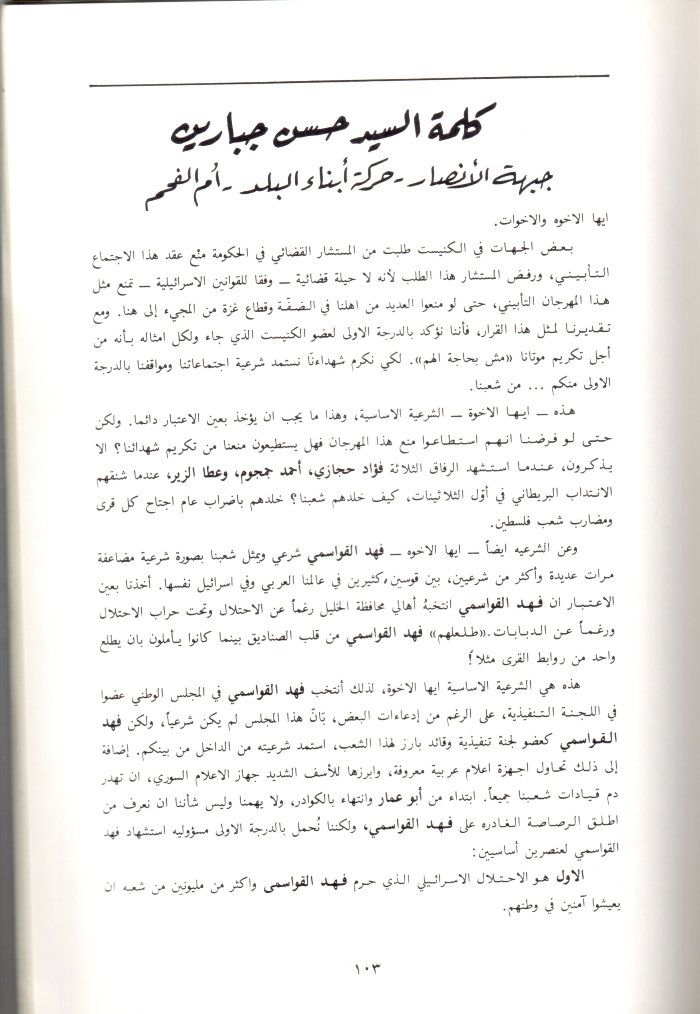 كلمة السيد حسن جبارين
جبهة الأنصار - حركة أبناء البلد - أم الفحم
ايها الاخوه والاخوات.
بعض الجهات في الكنيست طلبت من المستشار القضائي في الحكومة منْع عقد هذا الاجتماع
التأبيني، ورفض المستشار هذا الطلب لأنه لا حيلة قضائية ــ وفقا للقوانين الاسرائيلية ــ تمنع مثل
هذا المهرجان التأبيني، حتى لو منعوا العديد من اهلنا في الضفّة وقطاع غزة من المجيء إلى هنا. ومع
تقديرنا لمثل هذا القرار، فأننا نؤكد بالدرجة الاولى لعضو الكنيست الذي جاء ولكل امثاله بأنه من
أجل تكريم موتانا «مش بحاجة الهم». لكي نكرم شهداءنا نستمد شرعية اجتماعاتنا ومواقفنا بالدرجة
الاولى منكم ... من شعبنا.
هذه ــ ايها الاخوة ــ الشرعية الاساسية، وهذا ما يجب ان يؤخذ بعين الاعتبار دائما. ولكن
حتى لو فرضنا انهم استطاعوا منع هذا المهرجان فهل يستطيعون منعنا من تكريم شهدائنا؟ الا
يذكرون، عندما استشهد الرفاق الثلاثة فؤاد حجازي، أحمد جمجوم، وعطا الزير، عندما شنقهم
الانتداب البريطاني في أوّل الثلاثينات، كيف خلدهم شعبنا؟ خلدهم باضراب عام اجتاح كل قرى
ومضارب شعب فلسطين.
وعن الشرعيه ايضاً ــ ايها الاخوه ــ فهد القواسمي شرعي ويمثل شعبنا بصورة شرعية مضاعفة
مرات عديدة وأكثر من شرعيين، بين قوسين، كثيرين في عالمنا العربي وفي اسرائيل نفسها. أخذنا بعين
الاعتبار ان فهد القواسمي انتخبهُ أهالي محافظة الخليل رغماً عن الاحتلال وتحت حراب الاحتلال
ورغماً عن الدبابات. «طلعلهم» فهد القواسمي من قلب الصناديق بينما كانوا يأملون بان يطلع
واحد من روابط القرى مثلا!
هذه هي الشرعية الاساسية ايها الاخوة، لذلك أنتخب فهد القواسمي في المجلس الوطني عضوا
في اللجنة التنفيذية، على الرغم من إدعاءات البعض، بّانّ هذا المجلس لم يكن شرعياً، ولكن فهد
القواسمي كعضو لجنة تنفيذية وقائد بارز لهذا الشعب، استمد شرعيته من الداخل من بينكم. إضافة
إلى ذلك تحاول اجهزة اعلام عربية معروفة، وابرزها للأسف الشديد جهاز الاعلام السوري، ان تهدر
دم قيادات شعبنا جميعاً. ابتداء من أبو عمار وانتهاء بالكوادر، ولا يهمنا وليس شأننا ان نعرف من
اطلق الرصاصة الغادره على فهد القواسمي، ولكننا نُحمل بالدرجة الاولى مسؤوليه استشهاد فهد
القواسمي لعنصرين أساسيين:
الاول هو الاحتلال الاسرائيلي الذي حرم فهد القواسمي واكثر من مليونين من شعبه ان
يعيشوا آمنين في وطنهم.
١٠٣